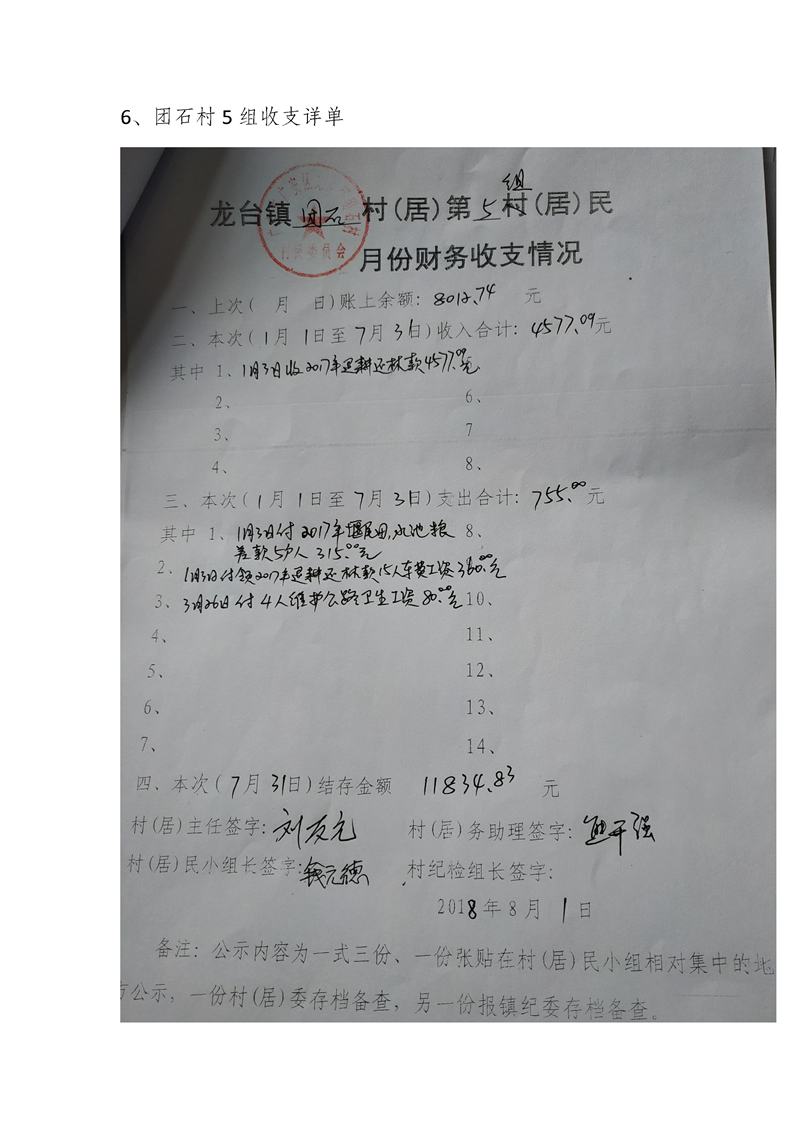 6、团石村5组收支详单
组
龙台镇 团石 村(居)第5村(居)民
村民委员会
月份财务收支情况
一、上次( 月 日)账上余额: 8012.74 元
二、本次(1月1日至7月31日)收入合计: 4577.09元
其中 1、1月3日收2017年退耕还林款4577.09元
2、 6、
3、 7
4、 8、
三、本次(1月1日至7月31日)支出合计: 755.00元
其中 1、1月3日付2017年堰尾田,水池粮 8、
差款5户人 315.00元
2、1月3日付领2017年退耕还林款15人车费工资360.00元
3、3月26日付4人维护公路卫生工资80.00元 10、
4、 11、
5、 12、
6、 13、
7、 14、
四、本次(7月31日)结存金额 11834.83 元
村(居)主任签字: 刘友元 村(居)务助理签字:
村(居)民小组长签字: 钱元德 村纪检组长签字:
2018年8月1日
备注: 公示内容为一式三份、一份张贴在村(居)民小组相对集中的地
方公示, 一份村(居)委存档备查, 另一份报镇纪委存档备查。